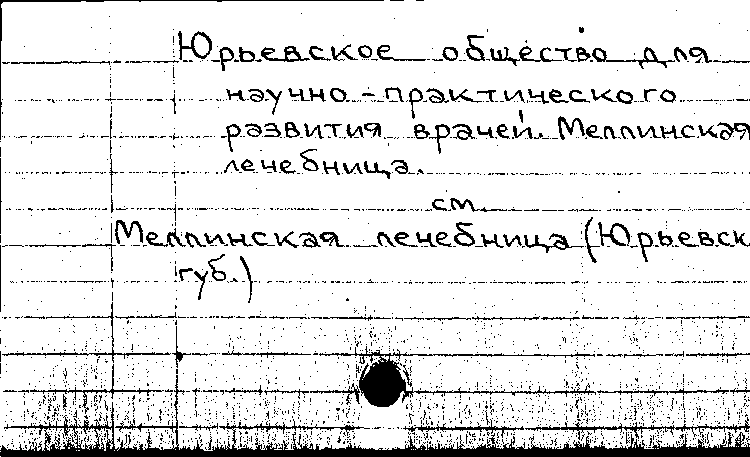 Юрьевское общество для
научно-практического
развития врачей. Меллинская
лечебница.
см.
Меллинская лечебница (Юрьевск
губ.)